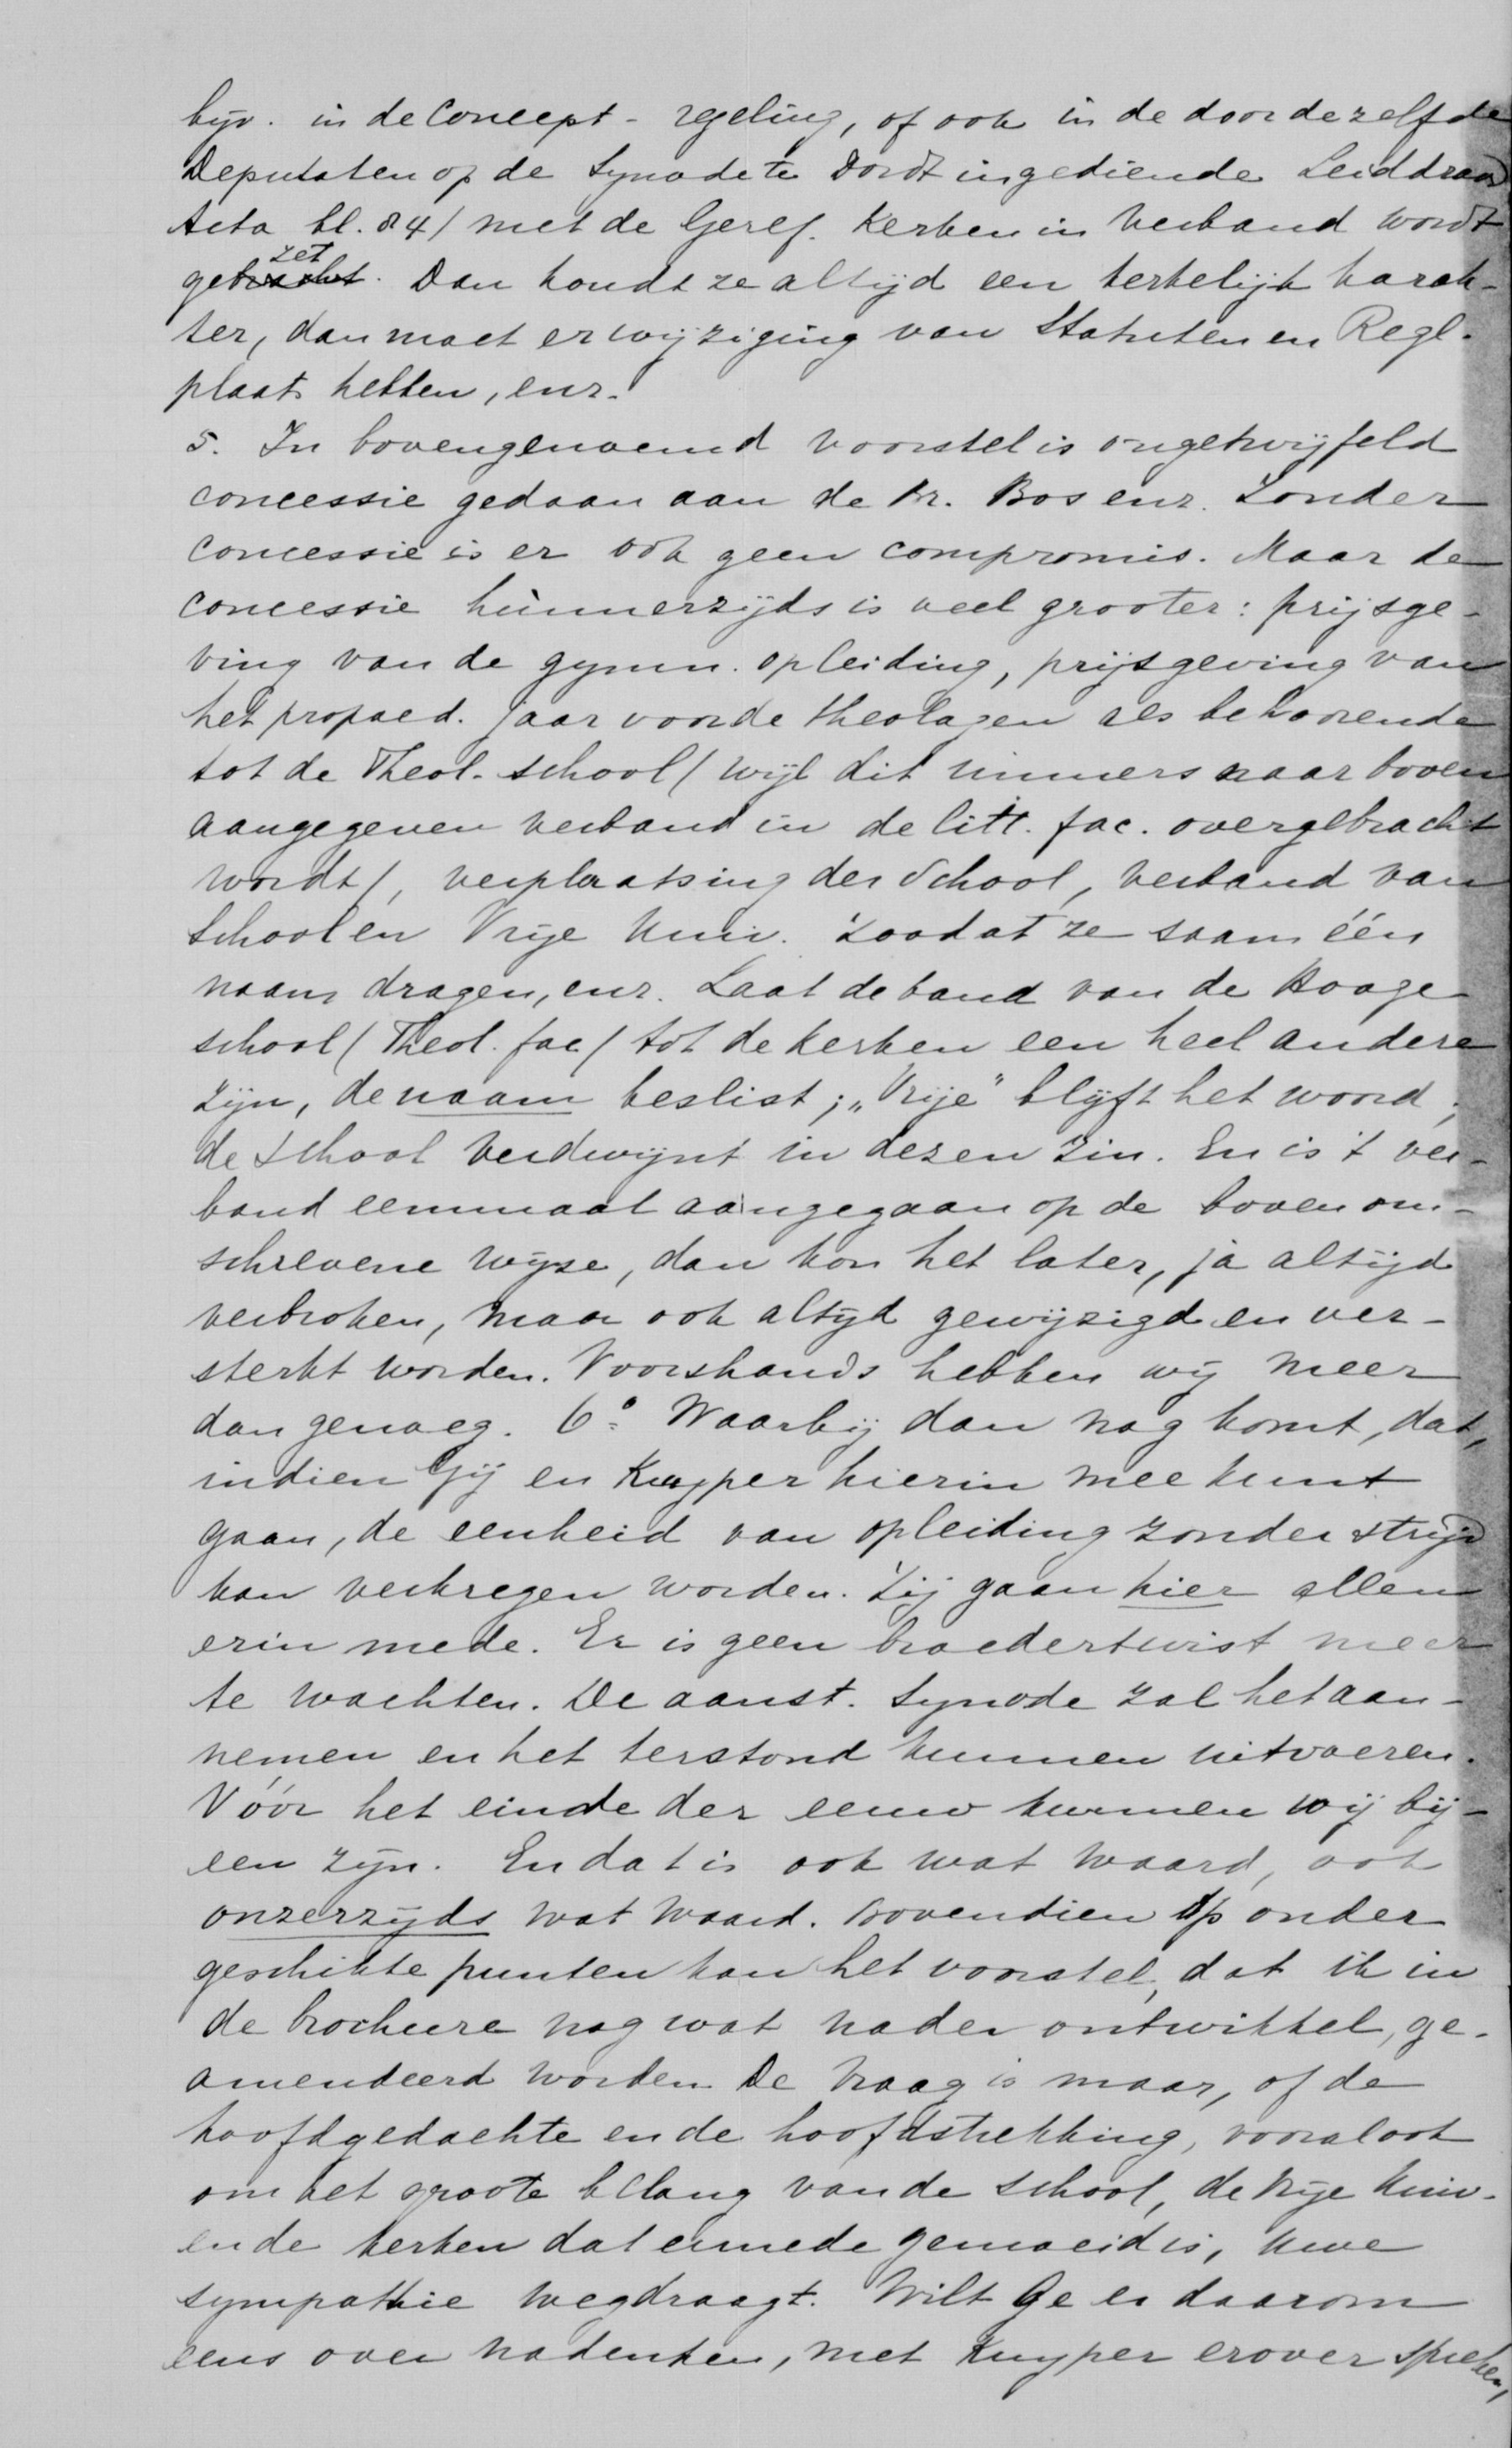 bijv. in de Concept-regeling, of ook in de door dezelfde
Deputaten op de Synode te Dordt ingediende Leiddraad
Acta bl. 84/ met de Geref. Kerken in verband wordt
gezet. Dan houdt ze altijd een kerkelijk karak-
ter, dan moet er wijziging van Statuten en Regl.
plaats hebben, enz.
5. In bovengenoemd voorstel is ongetwijfeld
concessie gedaan aan de br. Bos enz. Zonder
concessie is er ook geen compromis. Maar de
concessie hùnnerzijds is veel grooter: prijsge-
ving van de gymn. opleiding, prijsgeving van
het propaed. jaar voor de theologen als behoorende
tot de Theol. School (wijl dit immers naar boven
aangegeven verband in de litt. fac. overgebracht
wordt), verplaatsing der School, verband van
School en Vrije Univ. zoodat ze saam één
naam dragen, enz. Laat de band van de Hooge
school (Theol. fac) tot de kerken een heel andere
zijn, de naam beslist; „Vrije” blijft het woord;
de School verdwijnt in dezen zin. En is 't ver-
band eenmaal aangegaan op de boven om-
schrevene wijze, dan kan het later, ja altijd
verbroken, maar ook altijd gewijzigd en ver-
sterkt worden. Voorshands hebben wij meer
dan genoeg. 6º. Waarbij dan nog komt, dat,
indien Gij en Kuyper hierin mee kunt
gaan, de eenheid van opleiding zonder strijd
kan verkregen worden. Zij gaan hier allen
erin mede. Er is geen broedertwist meer
te wachten. De aanst. Synode zal het aan-
nemen en het terstond kunnen uitvoeren.
Vóór het einde der eeuw kunnen wij bij-
een zijn. En dat is ook wat waard, ook
onzerzijds wat waard. Bovendien op onder
geschikte punten kan het voorstel, dat ik in
de brochure nog wat nader ontwikkel, ge-
amendeerd worden. De vraag is maar, of de
hoofdgedachte en de hoofdstrekking, vooral ook
om het groote belang van de School, de Vrije Univ.
en de kerken dat ermede gemoeid is, Uwe
sympathie wegdraagt. Wilt Ge er daarom
eens over nadenken, met Kuyper erover spreken,